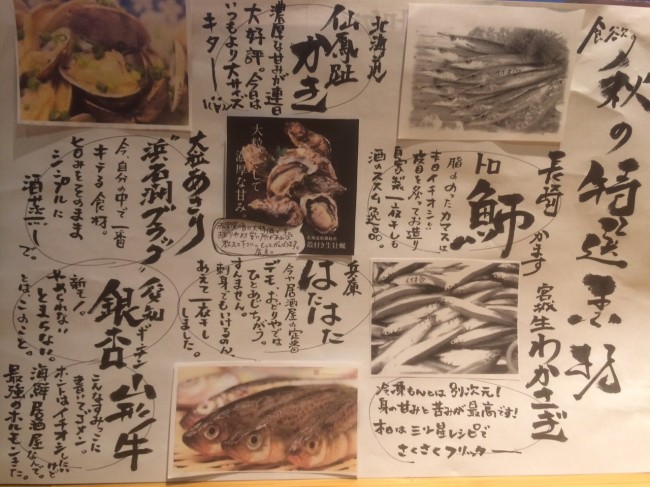 食欲の秋の特選素材
長崎 かます
トロ鰤
脂ののったカマスは
本日イチオシ!
皮目を炙ってお造り
自家製一夜干しも
酒のススム絶品。
宮城 生わかさぎ
冷凍もんとは別次元!
身の甘みと苦みが最高です!
本日は三ツ星レシピで
さくさくフリッター
北海道
仙鳳趾
かき
濃厚な甘みが連日
大好評。今日は
いつもより大サイズ
キター
大粒にして
濃厚な甘み。
殻付き生牡蠣
兵庫
はたはた
今や居酒屋の定番
デモ、おどりやでは
ひとあじちがう。
すんません。
刺身でもいけるのん、
あえて一夜干し
しました。
大粒あさり
"浜名湖ブラック"
今、自分の中で一番
キテる食材。
旨みをそのまま
シンプルに
酒蒸しで。
愛知 ギンナン
銀杏
新モノ!
やめられない
とまらない。
とはこのこと。
山形牛
こんなすみっこに
書いてゴメン。
ホントはイチオシしたいけど
海鮮居酒屋なんで。
最強のホルモンきた。